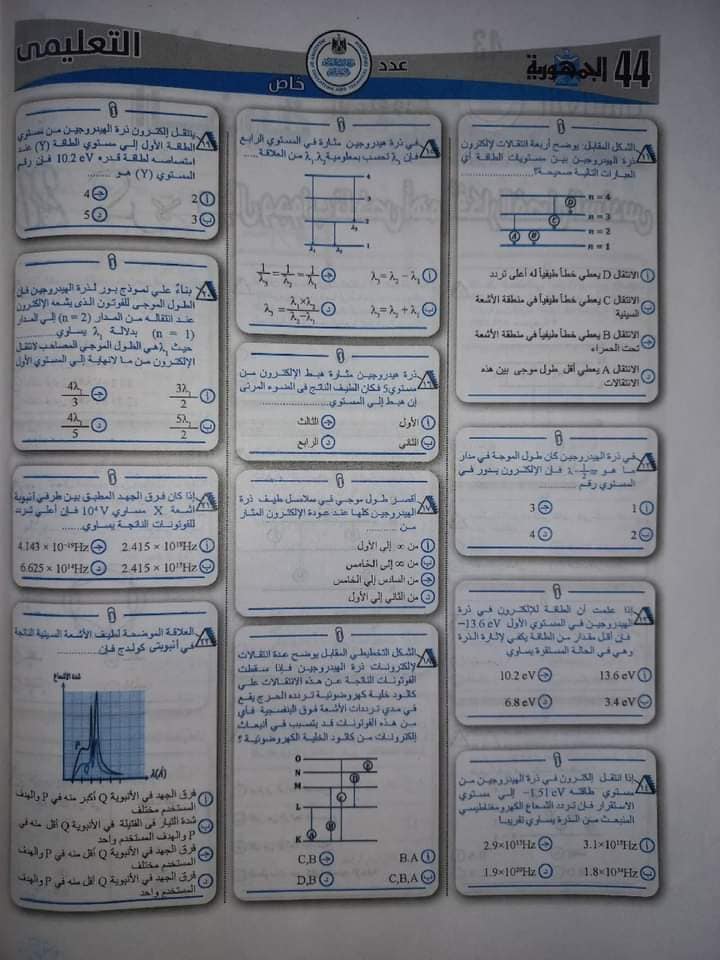 44 الجمهورية
عدد
خاص
التعليمى
الشكل المقابل: يوضح أربعة انتقالات لإلكترون
ذرة الهيدروجين بين مستويات الطاقة أي
العبارات التالية صحيحة؟
n = 4
n = 3
n = 2
n = 1
A
B
C
D
أ الانتقال D يعطي خطاً طيفياً له أعلى تردد
ب الانتقال C يعطي خطاً طيفياً في منطقة الأشعة
السينية
جـ الانتقال B يعطي خطاً طيفياً في منطقة الأشعة
تحت الحمراء
د الانتقال A يعطي أقل طول موجى بين هذه
الانتقالات
في ذرة الهيدروجين كان طول الموجة في مدار
ما هو
فإن الإلكترون يدور في
المستوي رقم
أ 1
جـ 3
ب 2
د 4
إذا علمت أن الطاقة للإلكترون في ذرة
الهيدروجين في المستوي الأول −13.6 eV
فإن أقل مقدار من الطاقة يكفي لإثارة الذرة
وهي في الحالة المستقرة يساوي
أ 13.6 eV
جـ 10.2 eV
ب 3.4 eV
د 6.8 eV
إذا انتقل إلكترون في ذرة الهيدروجين من
مستوي طاقته −1.51 eV إلى مستوي
الاستقرار فإن تردد الشعاع الكهرومغناطيسي
المنبعث من الذرة يساوي تقريبا:
أ 3.1×10¹⁵Hz
جـ 2.9×10¹⁵Hz
ب 1.8×10¹⁴Hz
د 1.9×10²⁰Hz
في ذرة هيدروجين مثارة في المستوي الرابع
فإن λ₃ تحسب بمعلومية λ₁, λ₂ من العلاقة
4
3
2
1
λ₁
λ₂
λ₃
أ λ₃ = λ₂ − λ₁
ب λ₃ = λ₂ + λ₁
د λ₃ = λ₁×λ₂ / λ₂−λ₁
ذرة هيدروجين مثارة هبط الإلكترون من
مستوي5 فكان الطيف الناتج فى الضوء المرئى
إن هبط إلي المستوي
أ الأول
جـ الثالث
ب الثاني
د الرابع
أقصر طول موجي في سلاسل طيف ذرة
الهيدروجين كلها عند عودة الإلكترون المثار
من
أ من ∞ إلي الأول
ب من ∞ إلى الخامس
جـ من السادس إلي الخامس
د من الثاني إلي الأول
الشكل التخطيطي المقابل يوضح عدة انتقالات
لإلكترونات ذرة الهيدروجين فإذا سقطت
الفوتونات الناتجة عن هذه الانتقالات علي
كاثود خلية كهروضوئية تردده الحرج يقع
في مدي ترددات الأشعة فوق البنفسجية فأي
من هذه الفوتونات قد يتسبب في انبعاث
إلكترونات من كاثود الخلية الكهروضوئية ؟
O
N
M
L
K
A
B
C
D
E
أ B.A
جـ C,B
ب C,B,A
د D,B
ينتقل إلكترون ذرة الهيدروجين من مستوي
الطاقة الأول إلي مستوي الطاقة (Y) عند
امتصاصه لطاقة قدره 10.2 eV فإن رقم
المستوي (Y) هو
أ 2
جـ 4
ب 3
د 5
بناءً علي نموذج بور لذرة الهيدروجين فإن
الطول الموجي للفوتون الذى يشعه الإلكترون
عند انتقاله من المدار (n = 2) إلي المدار
(n = 1) بدلالة λ₁ يساوي
حيث λ₁ هي الطول الموجي المصاحب لانتقال
الإلكترون من ما لانهاية إلي المستوي الأول
أ 3λ₁/2
جـ 4λ₁/3
ب 5λ₁/2
د 4λ₁/5
إذا كان فرق الجهد المطبق بين طرفي أنبوبة
أشعة X مساوي 10⁴V فإن أعلي تردد
للفوتونات الناتجة يساوي
أ 2.415 × 10¹⁸Hz
جـ 4.143 × 10⁻¹⁹Hz
ب 2.415 × 10¹⁵Hz
د 6.625 × 10¹⁴Hz
العلاقة الموضحة لطيف الأشعة السينية الناتجة
في أنبوبتى كولدج فإن
شدة الإشعاع
P
Q
λ(Å)
أ فرق الجهد في الأنبوبة Q أكبر منه في P والهدف
المستخدم مختلف
ب شدة التيار فى الفتيلة في الأنبوبة Q أقل منه في
P والهدف المستخدم واحد
جـ فرق الجهد في الأنبوبة Q أقل منه في P والهدف
المستخدم مختلف
د فرق الجهد في الأنبوبة Q أقل منه في P والهدف
المستخدم واحد